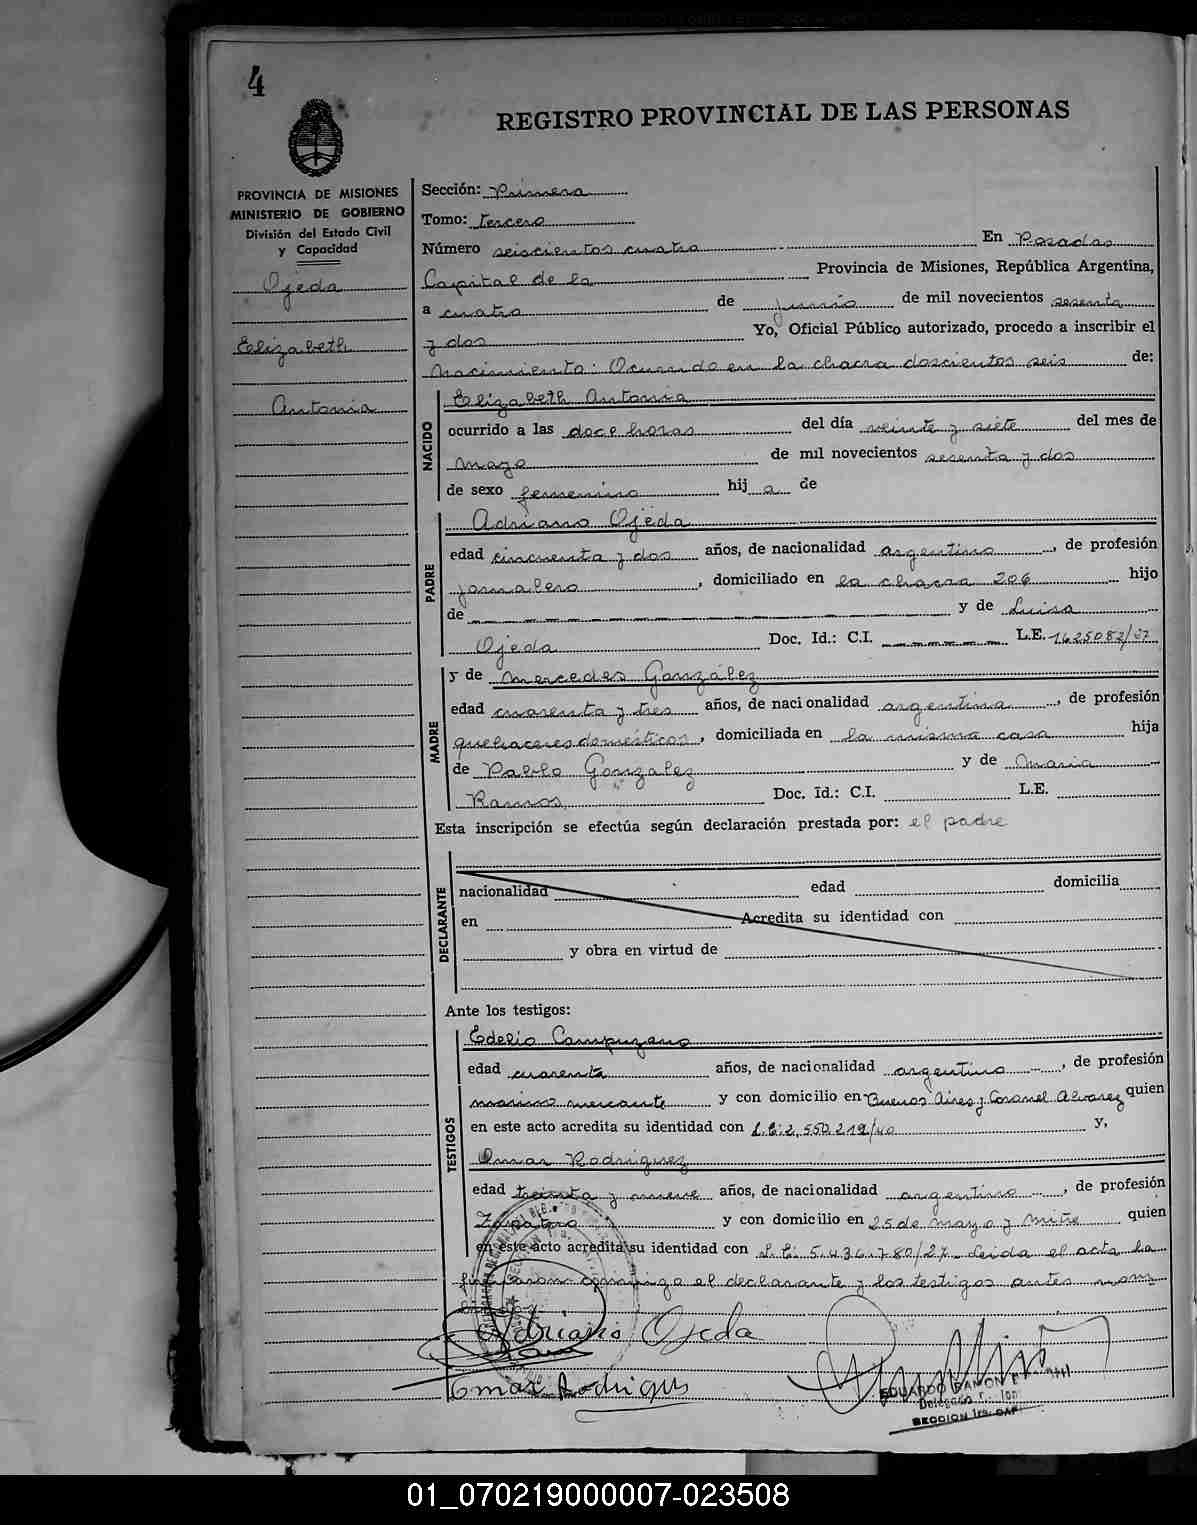 4
REGISTRO PROVINCIAL DE LAS PERSONAS
PROVINCIA DE MISIONES
MINISTERIO DE GOBIERNO
División del Estado Civil
y Capacidad
Ojeda
Elizabeth
Antonia
Sección: Primera
Tomo: tercero
Número seiscientos cuatro En Posadas
Capital de la Provincia de Misiones, República Argentina,
a cuatro de junio de mil novecientos sesenta
y dos Yo, Oficial Público autorizado, procedo a inscribir el
nacimiento: Ocurrido en la chacra doscientos seis de:
NACIDO
Elizabeth Antonia
ocurrido a las doce horas del día veinte y siete del mes de
mayo de mil novecientos sesenta y dos
de sexo femenino hij a de
PADRE
Adriano Ojeda
edad cincuenta y dos años, de nacionalidad argentino, de profesión
jornalero, domiciliado en la chacra 206 hijo
de y de Luisa
Ojeda Doc. Id.: C.I. L.E.
MADRE
y de Mercedes González
edad cuarenta y tres años, de nacionalidad argentina, de profesión
quehaceres domésticos, domiciliada en la misma casa hija
de Pablo González y de María
Ramos Doc. Id.: C.I. L.E.
Esta inscripción se efectúa según declaración prestada por: el padre
DECLARANTE
nacionalidad edad domicilia
en Acredita su identidad con
y obra en virtud de
Ante los testigos:
TESTIGOS
Edelio Campuzano
edad cuarenta años, de nacionalidad argentino, de profesión
marino mercante y con domicilio en Buenos Aires y Coronel Alvarez quien
en este acto acredita su identidad con L.E. 2.550.219/40 y,
Omar Rodriguez
edad treinta y nueve años, de nacionalidad argentino, de profesión
Zapatero y con domicilio en 25 de mayo y Mitre quien
en este acto acredita su identidad con L.E. 5.436.780/27. Leida el acta la
firmaron conmigo el declarante y los testigos antes nom
Adriano Ojeda
Omar Rodrigues
EDUARDO RAMON
SECCION 1ra. CAP.
01_070219000007-023508